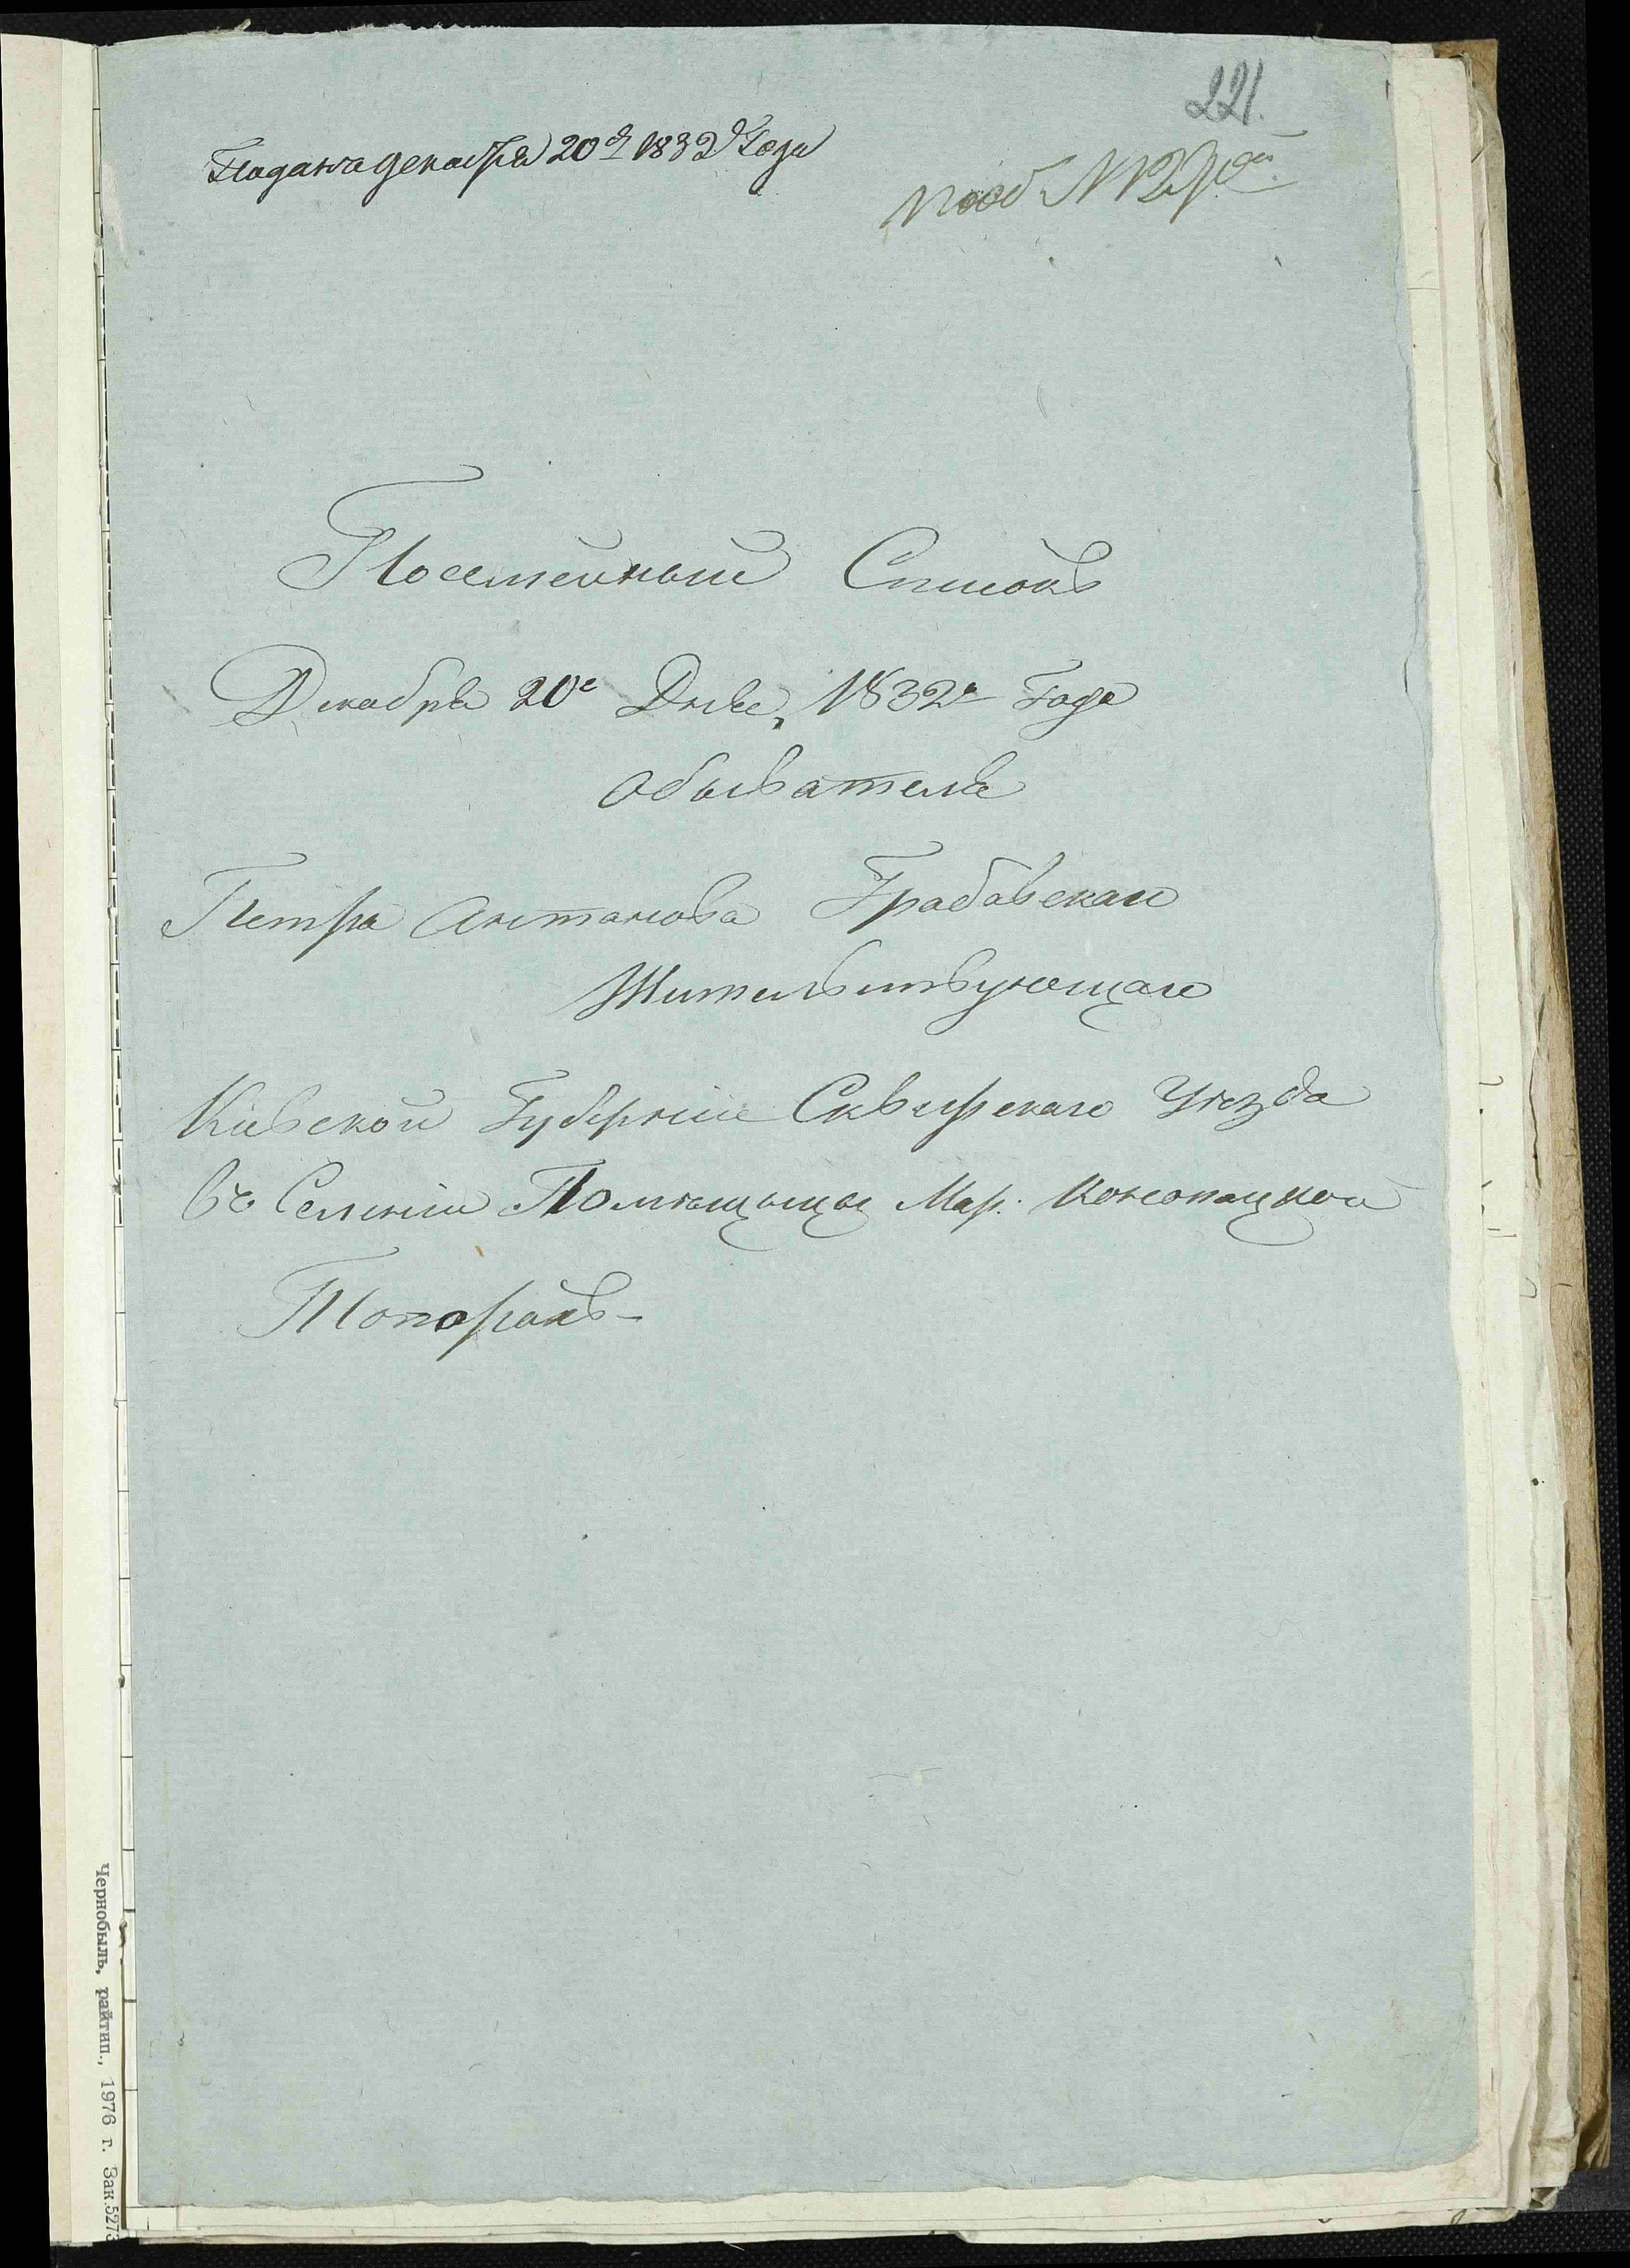 221.
Подана декабря 20 д 1832 Года
№ 29
Посемейный Списокъ
Декабря 20е Дня, 1832а Года
обывателя
Петра Антанова Грабавскаго
Жительствующаго
Кіевской Губерніи Сквирскаго Уезда
въ Селеніи Помѣщыцы Мар.
Топорахъ-
Чернобыль, райтип., 1976 г. Зак.5273